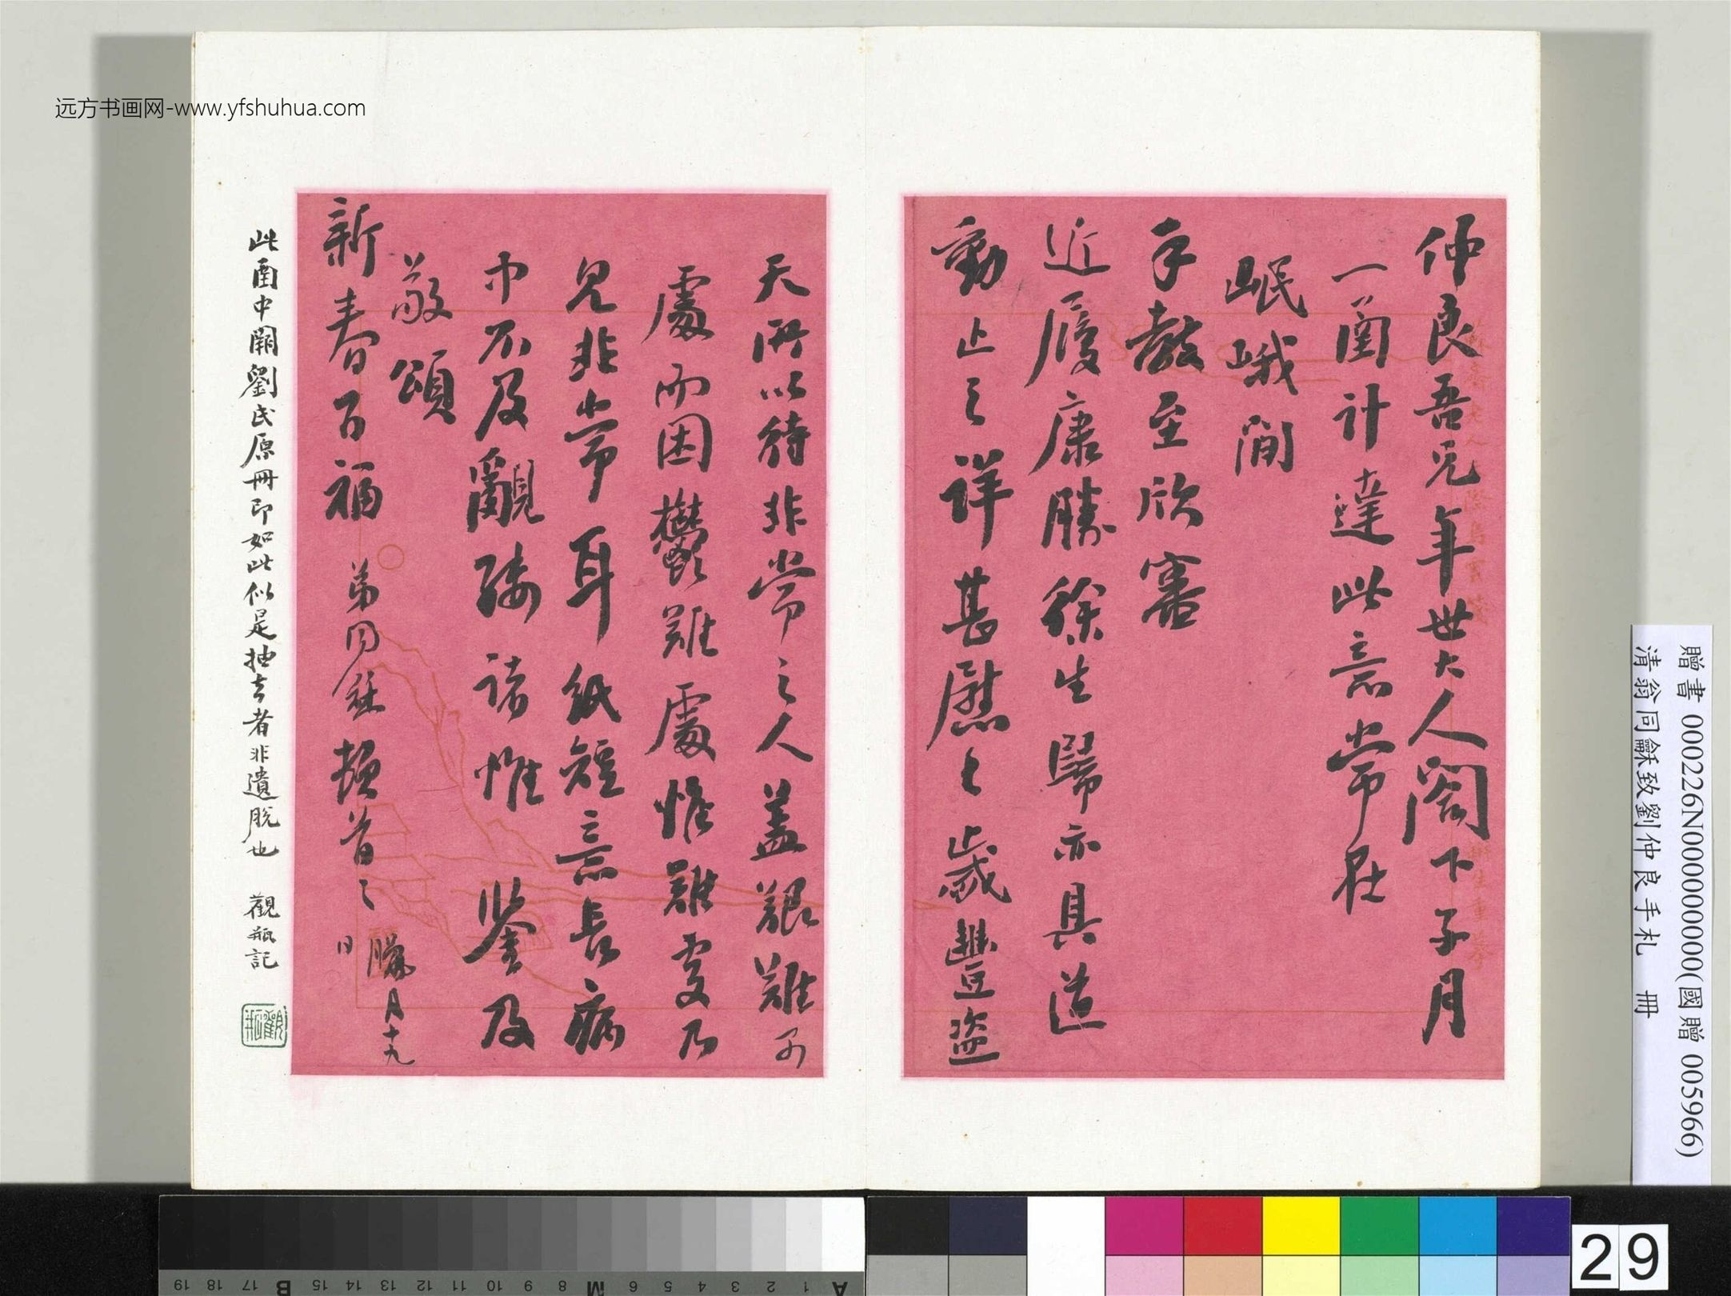 远方书画网-www.yfshuhua.com
仲良吾兄年世大人閣下子月
一圅計達此意常在
岷峨間
手敎至欣審
近履康勝徐生歸亦具道
動止之詳甚慰之歲豐盜
天所以待非常之人蓋艱難
處而困鬱難處惟難處乃
見非常耳紙短意長病
中不及覶縷諸惟 鑒及
敬頌
新春百福 弟同龢頓首
臘月十九日
此圅中闕劉氏原冊即如此似是抽去者非遺脫也 觀瓶記
觀瓶
贈書 000226N000000000(國贈 005966)
清翁同龢致劉仲良手札 冊
29